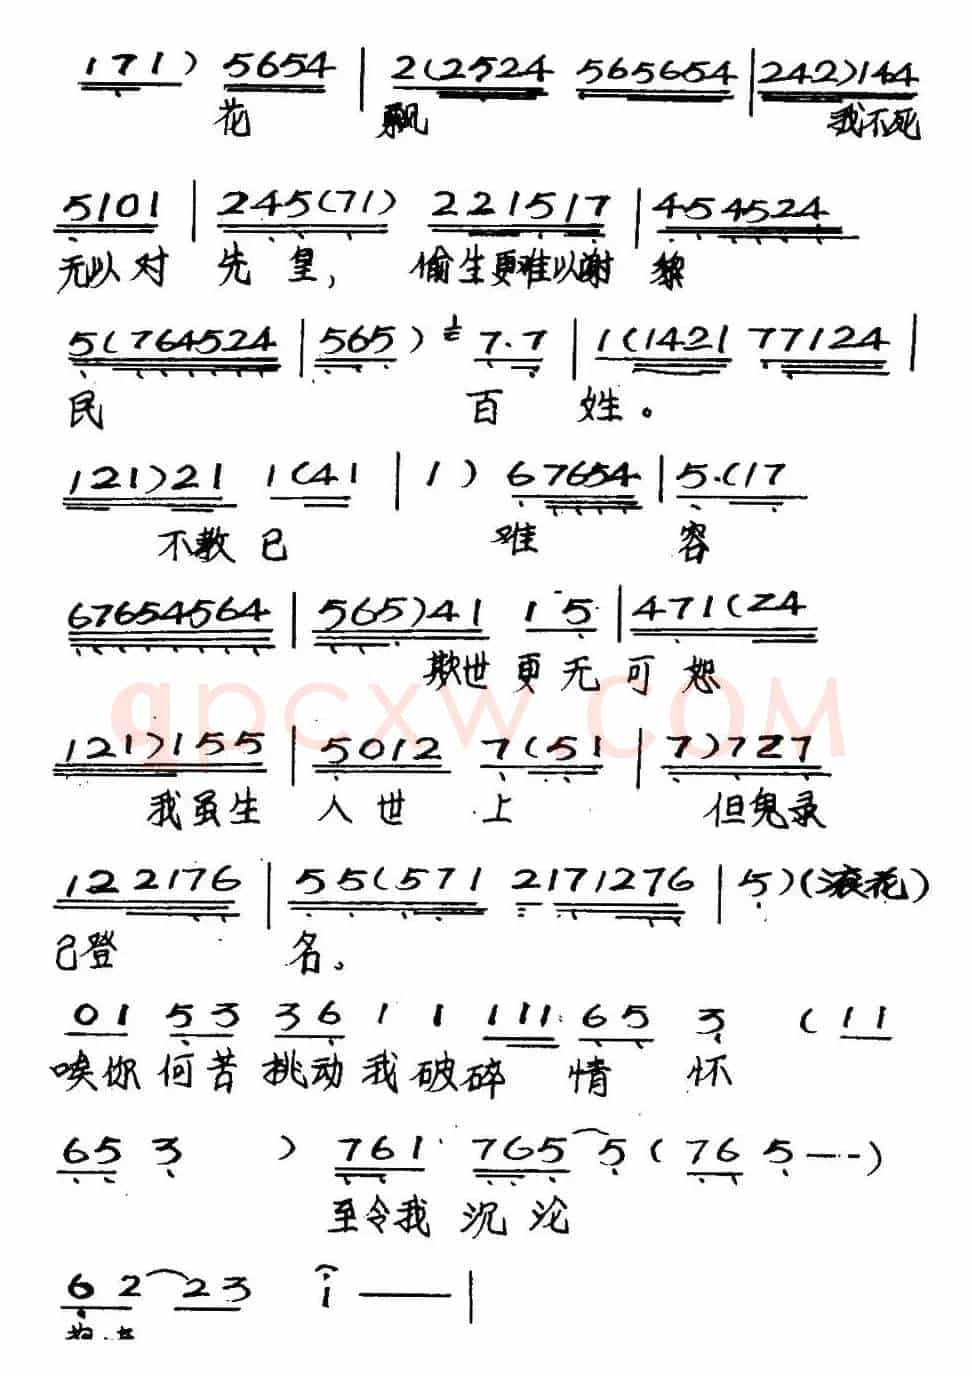 171) 5654 | 2(2524 565654 | 242)144
花 飘 我不死
5101 | 245(71) 221517 | 454524
无以对 先皇, 偷生更难以谢 黎
5(764524 | 565) 7.7 | 1(1421 77124 |
民 百 姓。
121)21 1(41 | 1) 67654 | 5.(17
不教已 难 容
67654564 | 565)41 1 5 | 471(24
欺世更无可恕
qpcxw.com
121)155 | 5012 7(51 | 7)727
我虽生 人世上 但鬼录
122176 | 55(571 2171276 | 5)(滚花)
已登 名。
01 53 36 1 1 111 65 3 (11
唉你何苦挑动我破碎情怀
65 3 ) 761 765 5(76 5—--)
至令我沉沦
6 2 23 i —— |